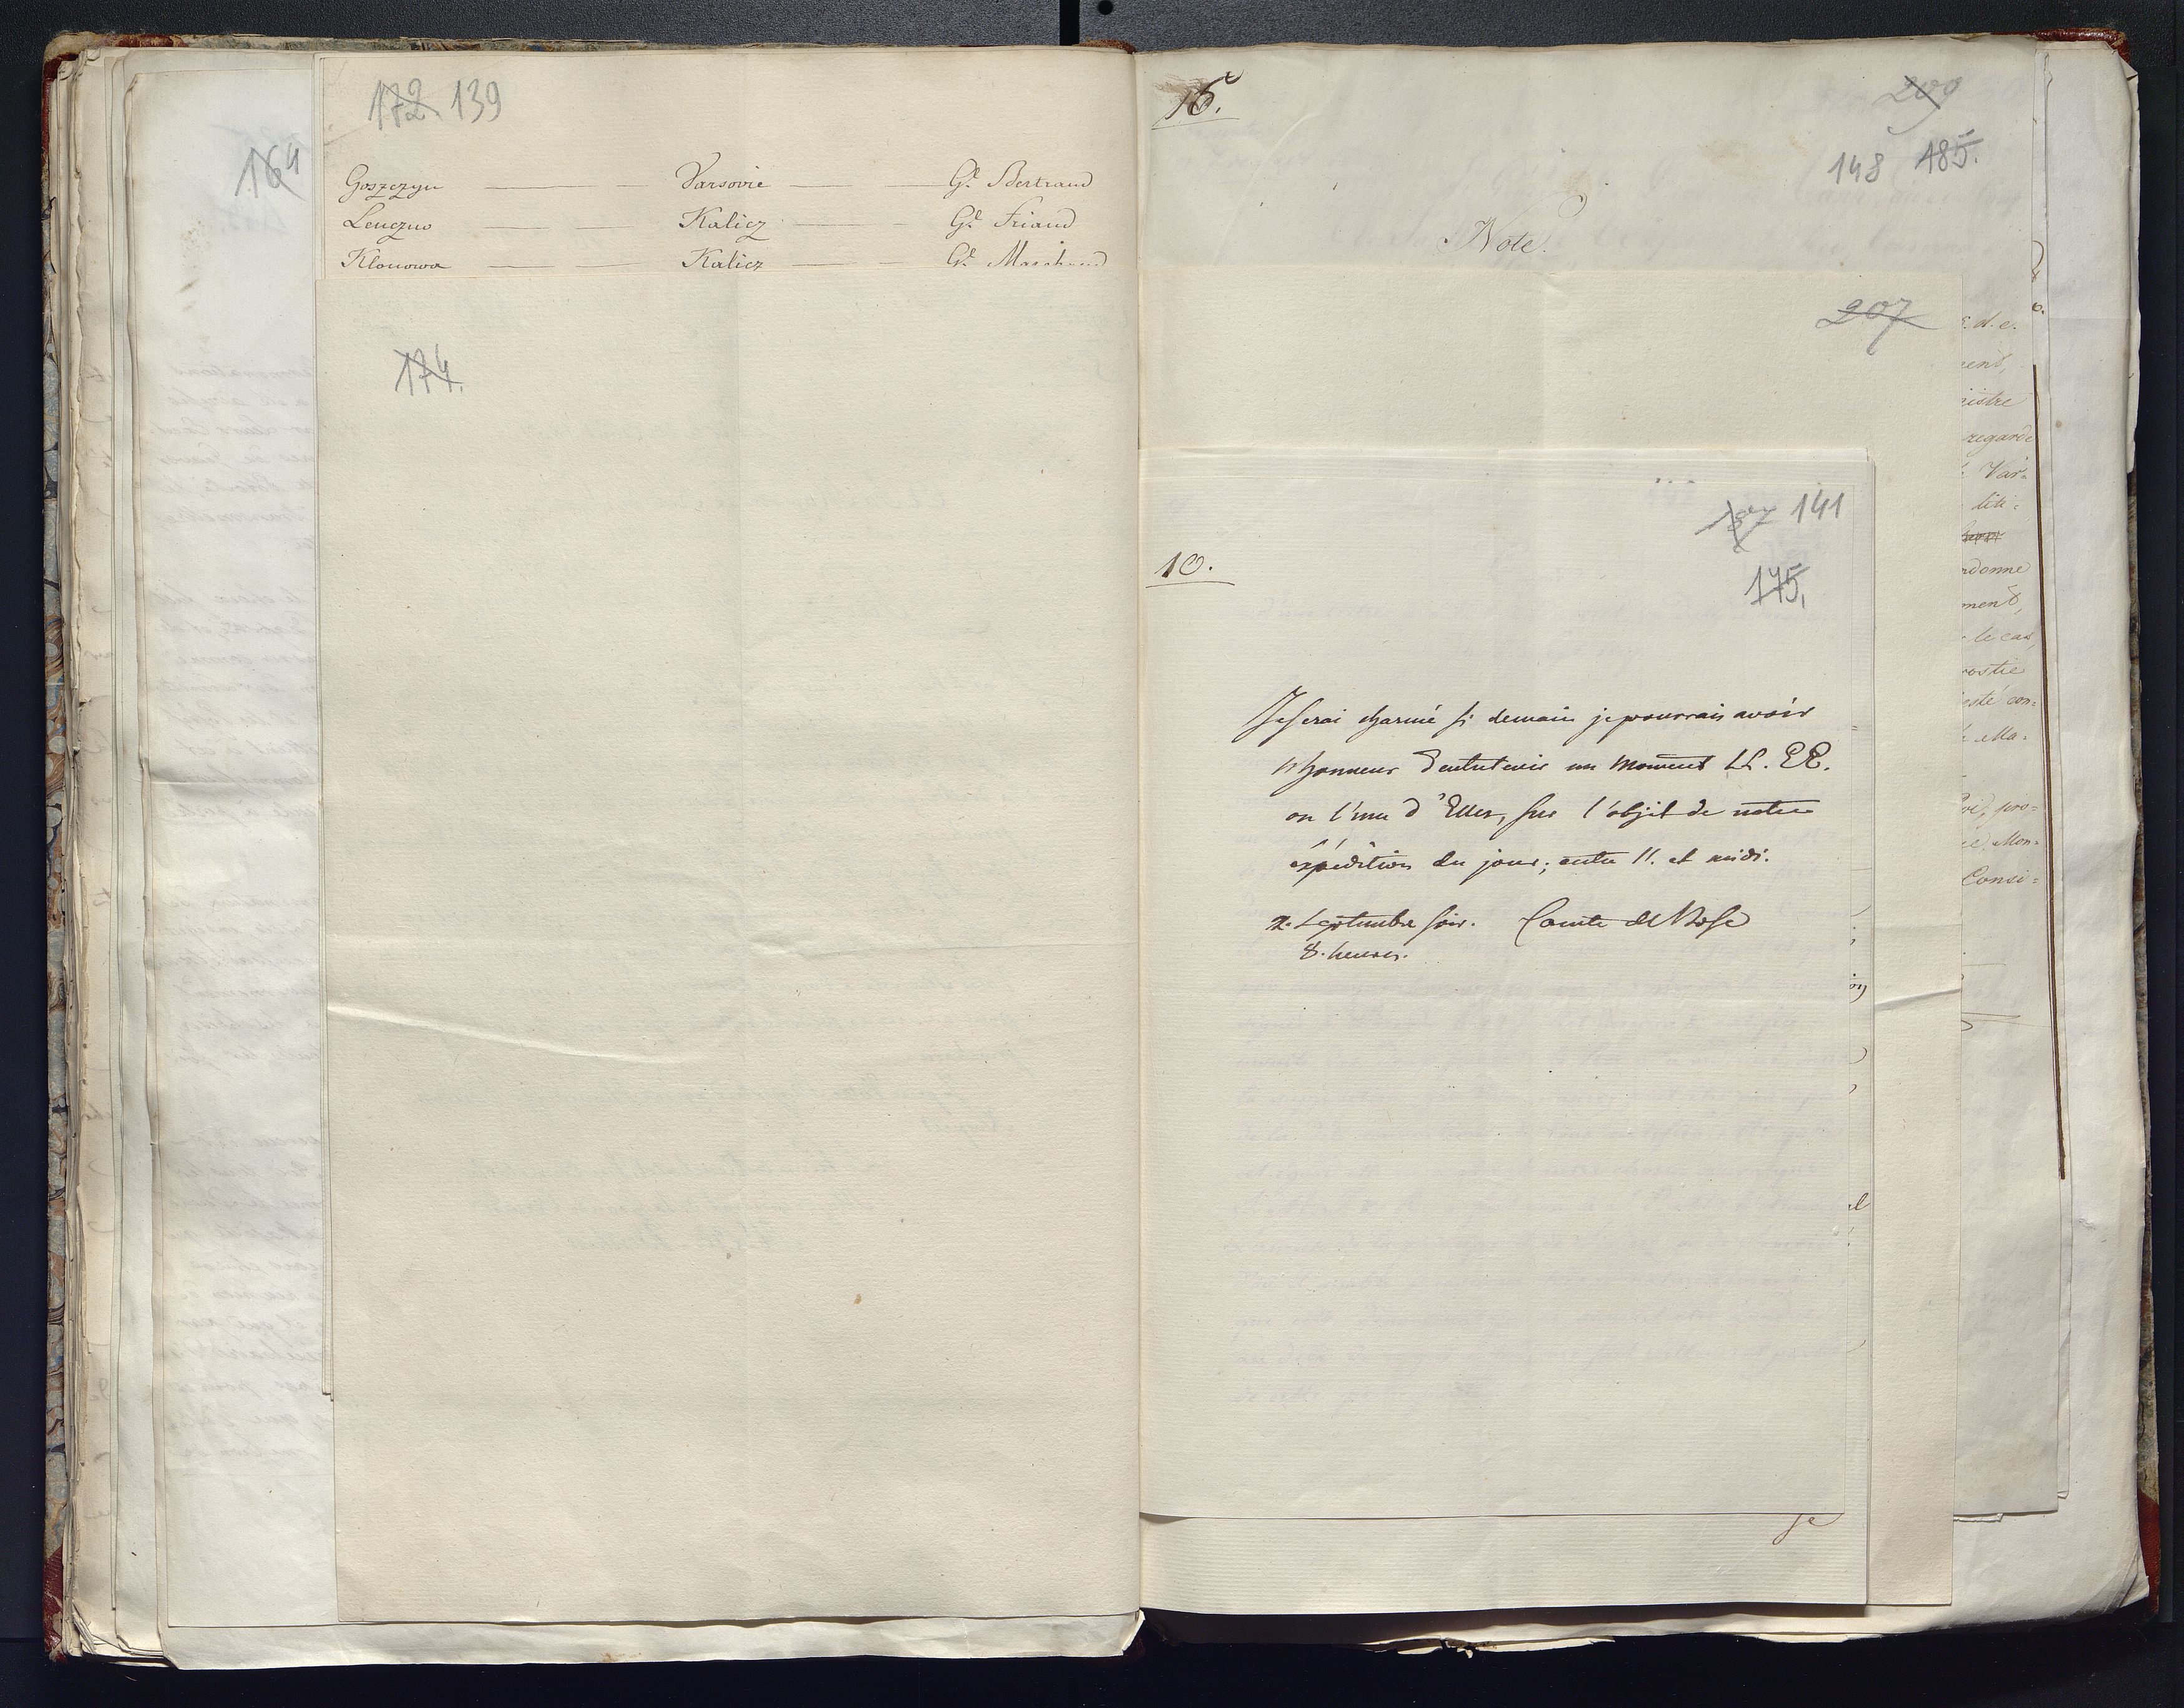 172 139
164
Goszczyn — Varsovie — Gl. Bertrand
Lenczno — Kalicz — Gl. Friand
Klonowa — Kalicz — Gl. Marchand
174.
16.
209
148 185.
Note.
207
141
10.
175.
Je serai charmé si demain je pourrais avoir
l'honneur d'entretenir un moment LL. EE.
ou l'une d'Elles, sur l'objet de notre
expédition du jour; entre 11. et midi.
2. Septembre soir. Comte de Bose
8. heures.
e. d. e.
ment,
nistre
regarde
Var-
liti-
rdonne
ment,
le cas,
rostie
esté con-
Ma-
pro-
Mon-
Consi-
je